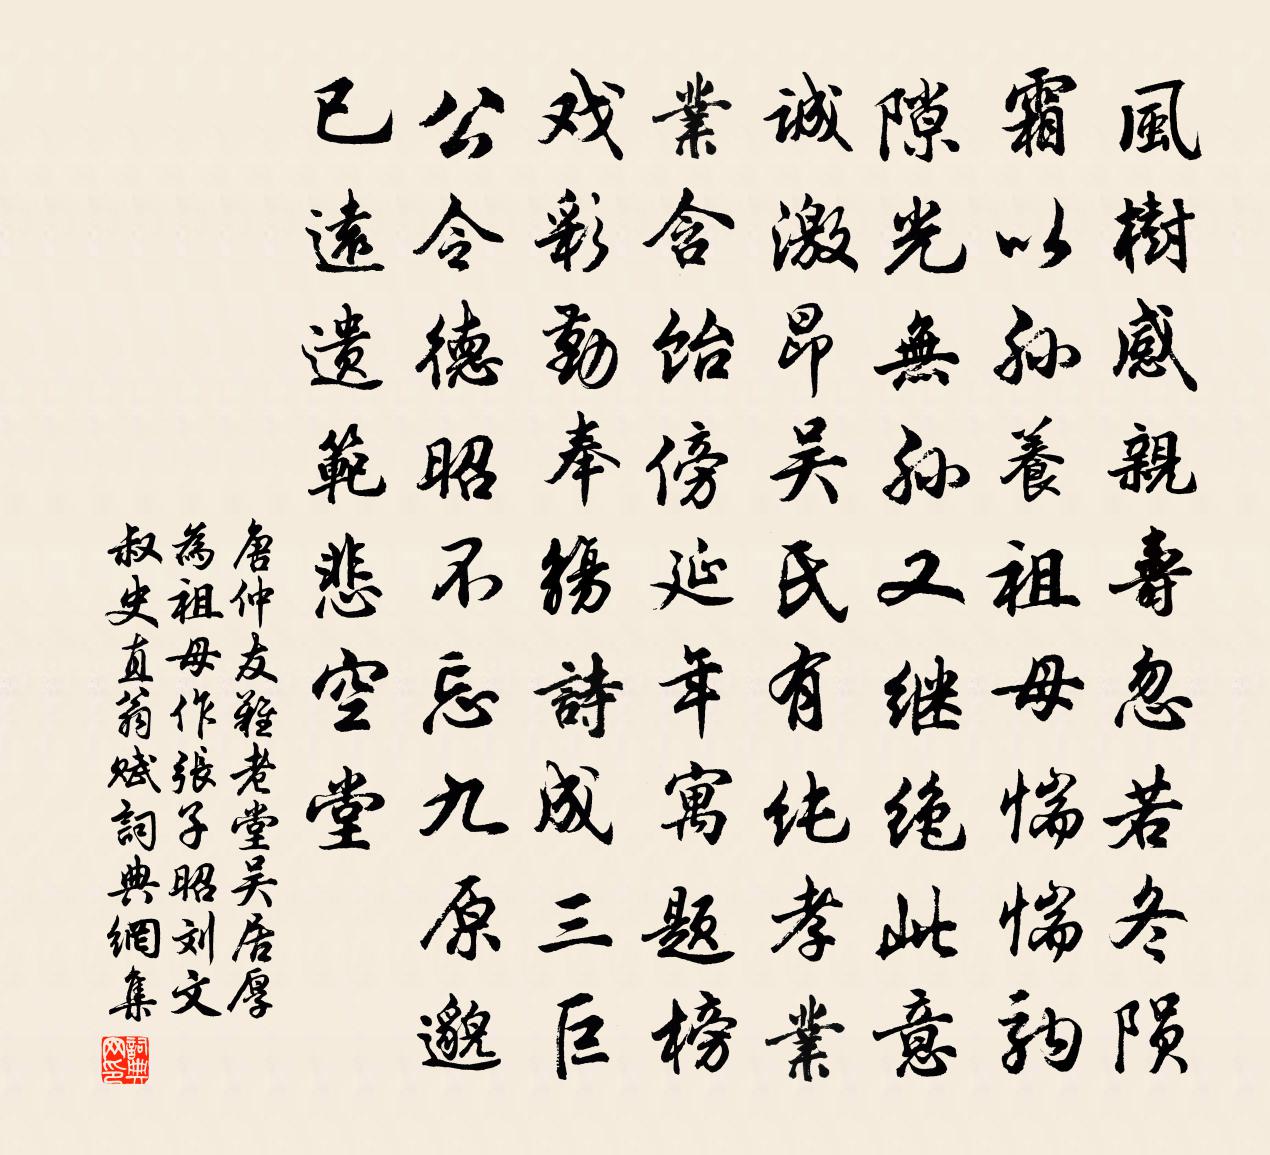 風樹感親壽忽若冬陨
霜以孙養祖母惴惴驹
隙光無孙又继绝此意
誠激昂吴氏有纯孝業
業含饴傍延年寓题榜
戏彩勤奉觞詩成三巨
公令德昭不忘九原邈
已遠遗範悲空堂
唐仲友難老堂吴居厚
為祖母作張子昭刘文
叔史直翁赋詞典網集
詞典网印